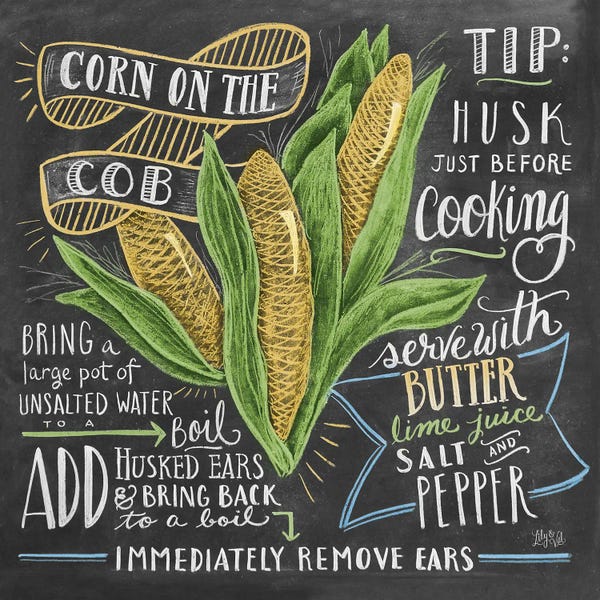 CORN ON THE
COB
TIP:
HUSK
JUST BEFORE
cooking
BRING a
large pot of
UNSALTED WATER
TO A
Boil
ADD
HUSKED EARS
& BRING BACK
to a boil
IMMEDIATELY REMOVE EARS
serve with
BUTTER
lime juice
SALT AND
PEPPER
Lily & Val